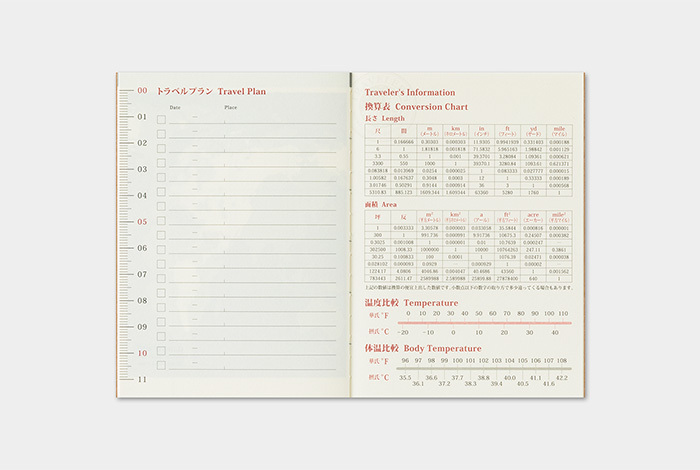 00 トラベルプラン Travel Plan
Date Place
01
02
03
04
05
06
07
08
09
10
11
Traveler's Information
換算表 Conversion Chart
長さ Length
尺 間 m km in ft yd mile
(メートル) (キロメートル) (インチ) (フィート) (ヤード) (マイル)
1 0.166666 0.30303 0.000303 11.9305 0.9941939 0.331403 0.000188
6 1 1.81818 0.001818 71.5832 5.965163 1.98842 0.001129
3.3 0.55 1 0.001 39.3701 3.28084 1.09361 0.000621
3300 550 1000 1 39370.1 3280.84 1093.61 0.621371
0.083818 0.013969 0.0254 0.000025 1 0.083333 0.027777 0.000015
1.00582 0.167637 0.3048 0.0003 12 1 0.33333 0.000189
3.01746 0.50291 0.9144 0.000914 36 3 1 0.000568
5310.83 885.123 1609.344 1.609344 63360 5280 1760 1
面積 Area
坪 反 m² km² a ft² acre mile²
(平方メートル) (平方キロメートル) (アール) (平方フィート) (エーカー) (平方マイル)
1 0.003333 3.30578 0.000003 0.033058 35.5844 0.000816 0.000001
300 1 991.736 0.000991 9.91736 10675.3 0.24507 0.000382
0.3025 0.001008 1 0.000001 0.01 10.7639 0.000247
302500 1008.33 1000000 1 10000 10764263 247.11 0.3861
30.25 0.100833 100 0.0001 1 1076.39 0.02471 0.000038
0.028102 0.000093 0.0929 0.000929 1 0.00002
1224.17 4.0806 4046.86 0.004047 40.4686 43560 1 0.001562
783443 2611.47 2589988 2.589988 25899.88 27878400 640 1
温度比較 Temperature
華氏 °F 0 10 20 30 40 50 60 70 80 90 100 110
摂氏 °C −20 −10 0 10 20 30 40
体温比較 Body Temperature
華氏 °F 96 97 98 99 100 101 102 103 104 105 106 107 108
摂氏 °C 35.5 36.6 37.7 38.8 40.0 41.1 42.2
36.1 37.2 38.3 39.4 40.5 41.6